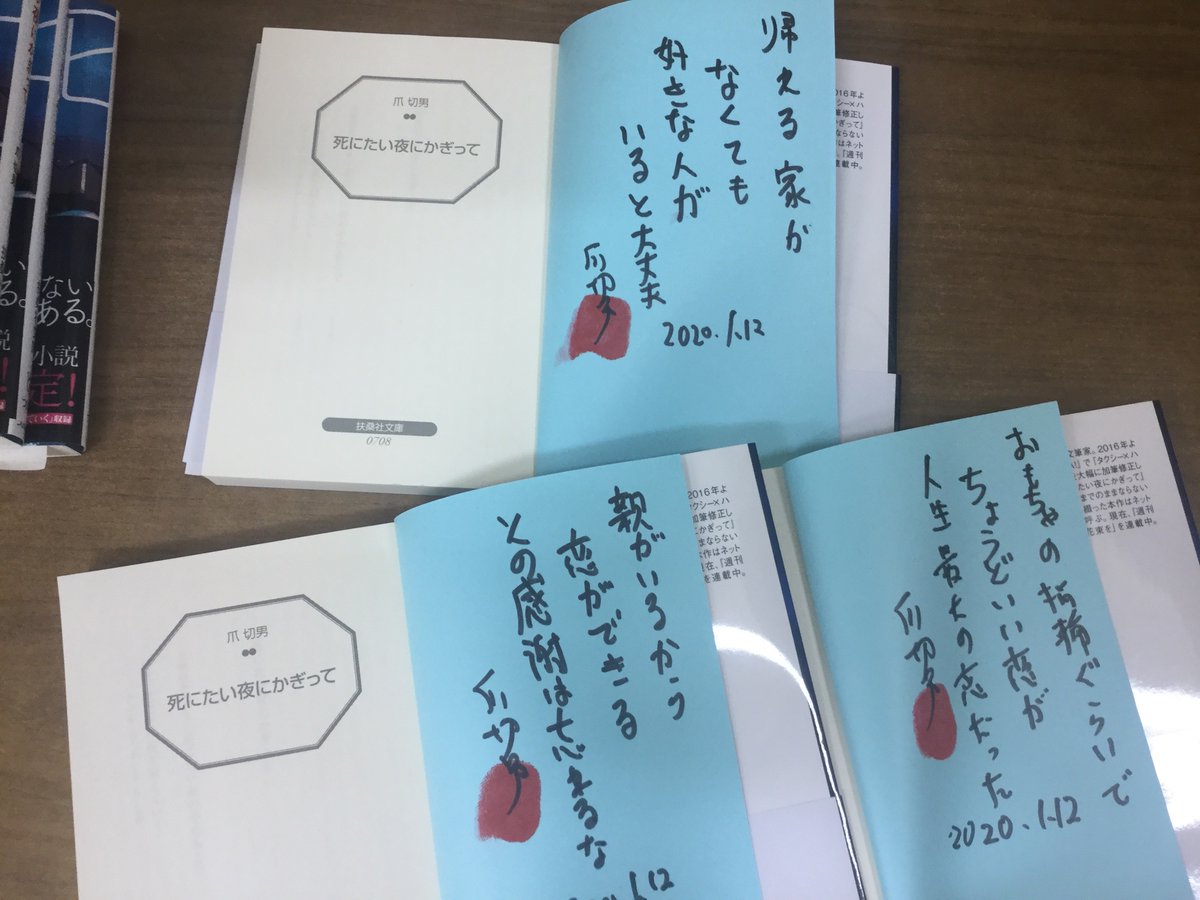 爪 切男
死にたい夜にかぎって
扶桑社文庫
0708
帰える家が
なくても
好きな人が
いると大丈夫
爪切男
2020.1.12
2016年よ
タクシー×ハ
加筆修正し
かぎって」
まならない
作はネット
「週刊
連載中。
爪 切男
死にたい夜にかぎって
親がいるから
恋ができる
その感謝は忘れるな
爪切男
1.12
2016年よ
タクシー×ハ
加筆修正し
にかぎって」
まならない
本作はネット
在、「週刊
を連載中。
おもちゃの指輪ぐらいで
ちょうどいい恋が
人生最大の恋だった
爪切男
2020.1.12
文筆家。2016年よ
で「タクシー×ハ
大幅に加筆修正し
たい夜にかぎって」
までのままならない
綴った本作はネット
呼ぶ。現在、「週刊
花束を」を連載中。
ない
ある。
小説
定!
ていく」収録